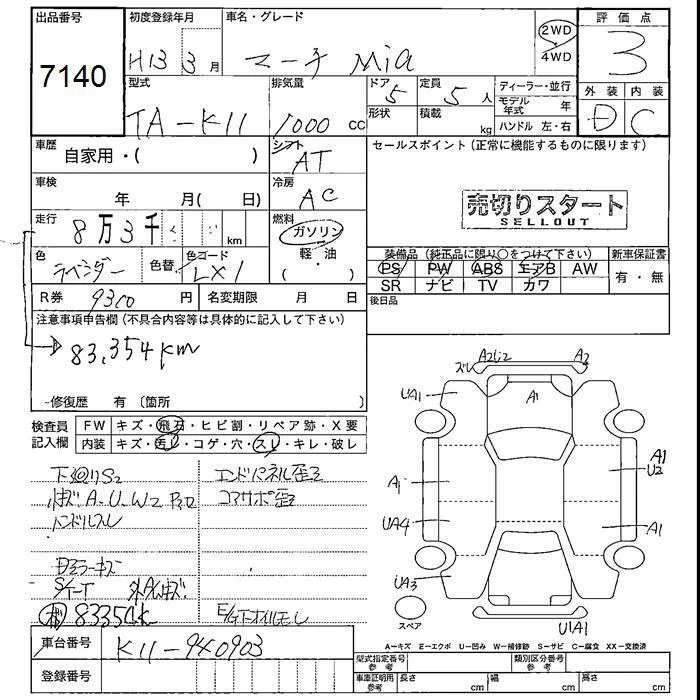 出品番号 初度登録年月 車名・グレード 評価点
7140 H13 3月 マーチ Mia 2WD 4WD 3
型式 排気量 ドア 定員 ディーラー・並行 外装 内装
TA-K11 1000 CC 5 5人 モデル年式 年 D C
形状 積載 kg ハンドル 左・右
車歴 シフト セールスポイント(正常に機能するものに限ります)
自家用・( ) AT
車検 冷房
年 月( 日) AC 売切りスタート
SELLOUT
走行 燃料
8万3千 km ガソリン
軽・油
( )
色 色替 色コード 装備品(純正品に限り○をつけて下さい) 新車保証書
ラベンダー LX1 PS PW ABS エアB AW 有・無
SR ナビ TV カワ
R券 9300 円 名変期限 月 日 後日品
注意事項申告欄(不具合内容等は具体的に記入して下さい)
83,354km
修復歴 有 〔箇所 〕
検査員記入欄 FW キズ・飛石・ヒビ割・リペア跡・X要
内装 キズ・汚レ・コゲ・穴・スレ・キレ・破レ
下廻りS2 エンドパネル歪ミ
A.U.W2 コアサポ歪ミ
ハンドルスレ
83354K
車台番号 K11-940903
登録番号
ズレ A2 A2
UA1 A1
A1 A1
U2
UA4 A1
UA3
スペア U1A1
A-キズ E-エクボ U-凹み W-補修跡 S-サビ C-腐食 XX-交換済
型式指定番号 参考 類別区分番号 参考
車庫証明用 参考 長さ cm 幅 cm 高さ cm